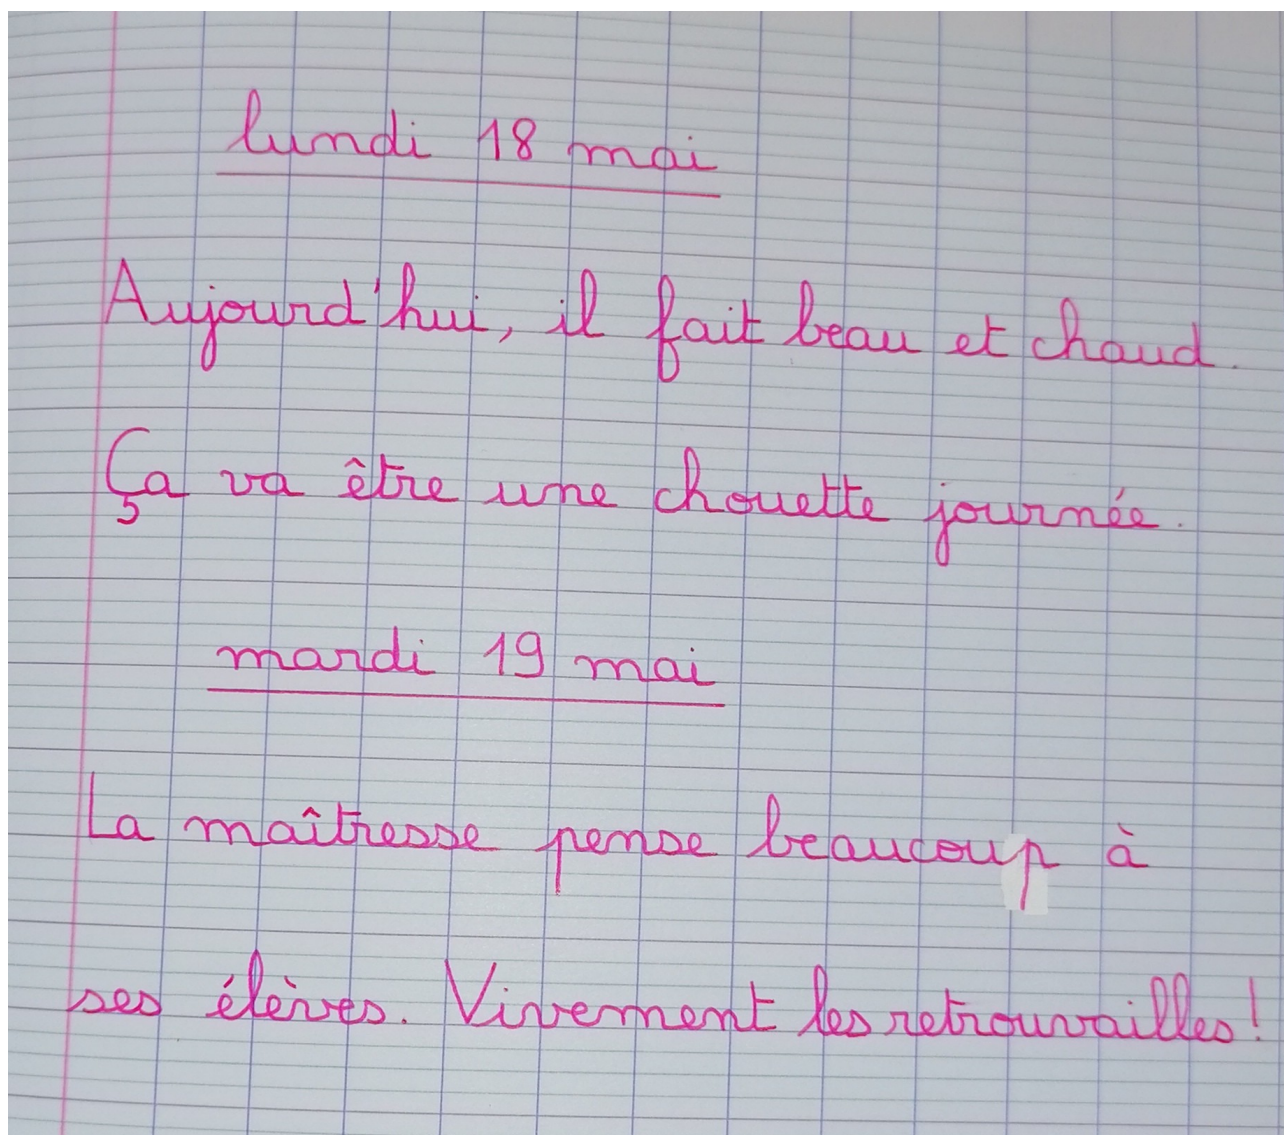 lundi 18 mai
Aujourd'hui, il fait beau et chaud.
Ça va être une chouette journée.
mardi 19 mai
La maîtresse pense beaucoup à
ses élèves. Vivement les retrouvailles!